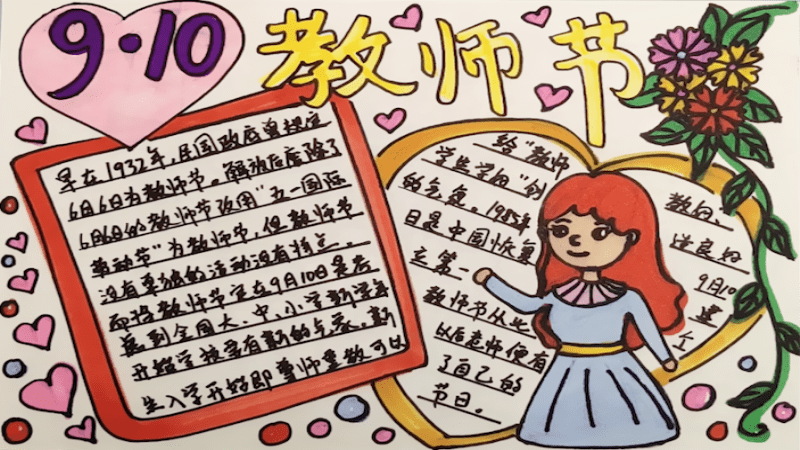 9·10 教师节
早在1932年，民国政府曾规定
6月6日为教师节。解放后废除了
6月6日的教师节改用"五一国际
劳动节"为教师节，但教师节
没有单独的活动没有特定。
而将教师节定在9月10日是考
虑到全国大、中、小学新学年
开始学校要有新的气象。新
生入学开始即尊师重教可以
给"教师 教好、
学生学好"创 造良好
的气氛。1985年 9月10
日是中国恢复 建
立第一 个
教师节从此
以后老师便有
了自己的
节日。